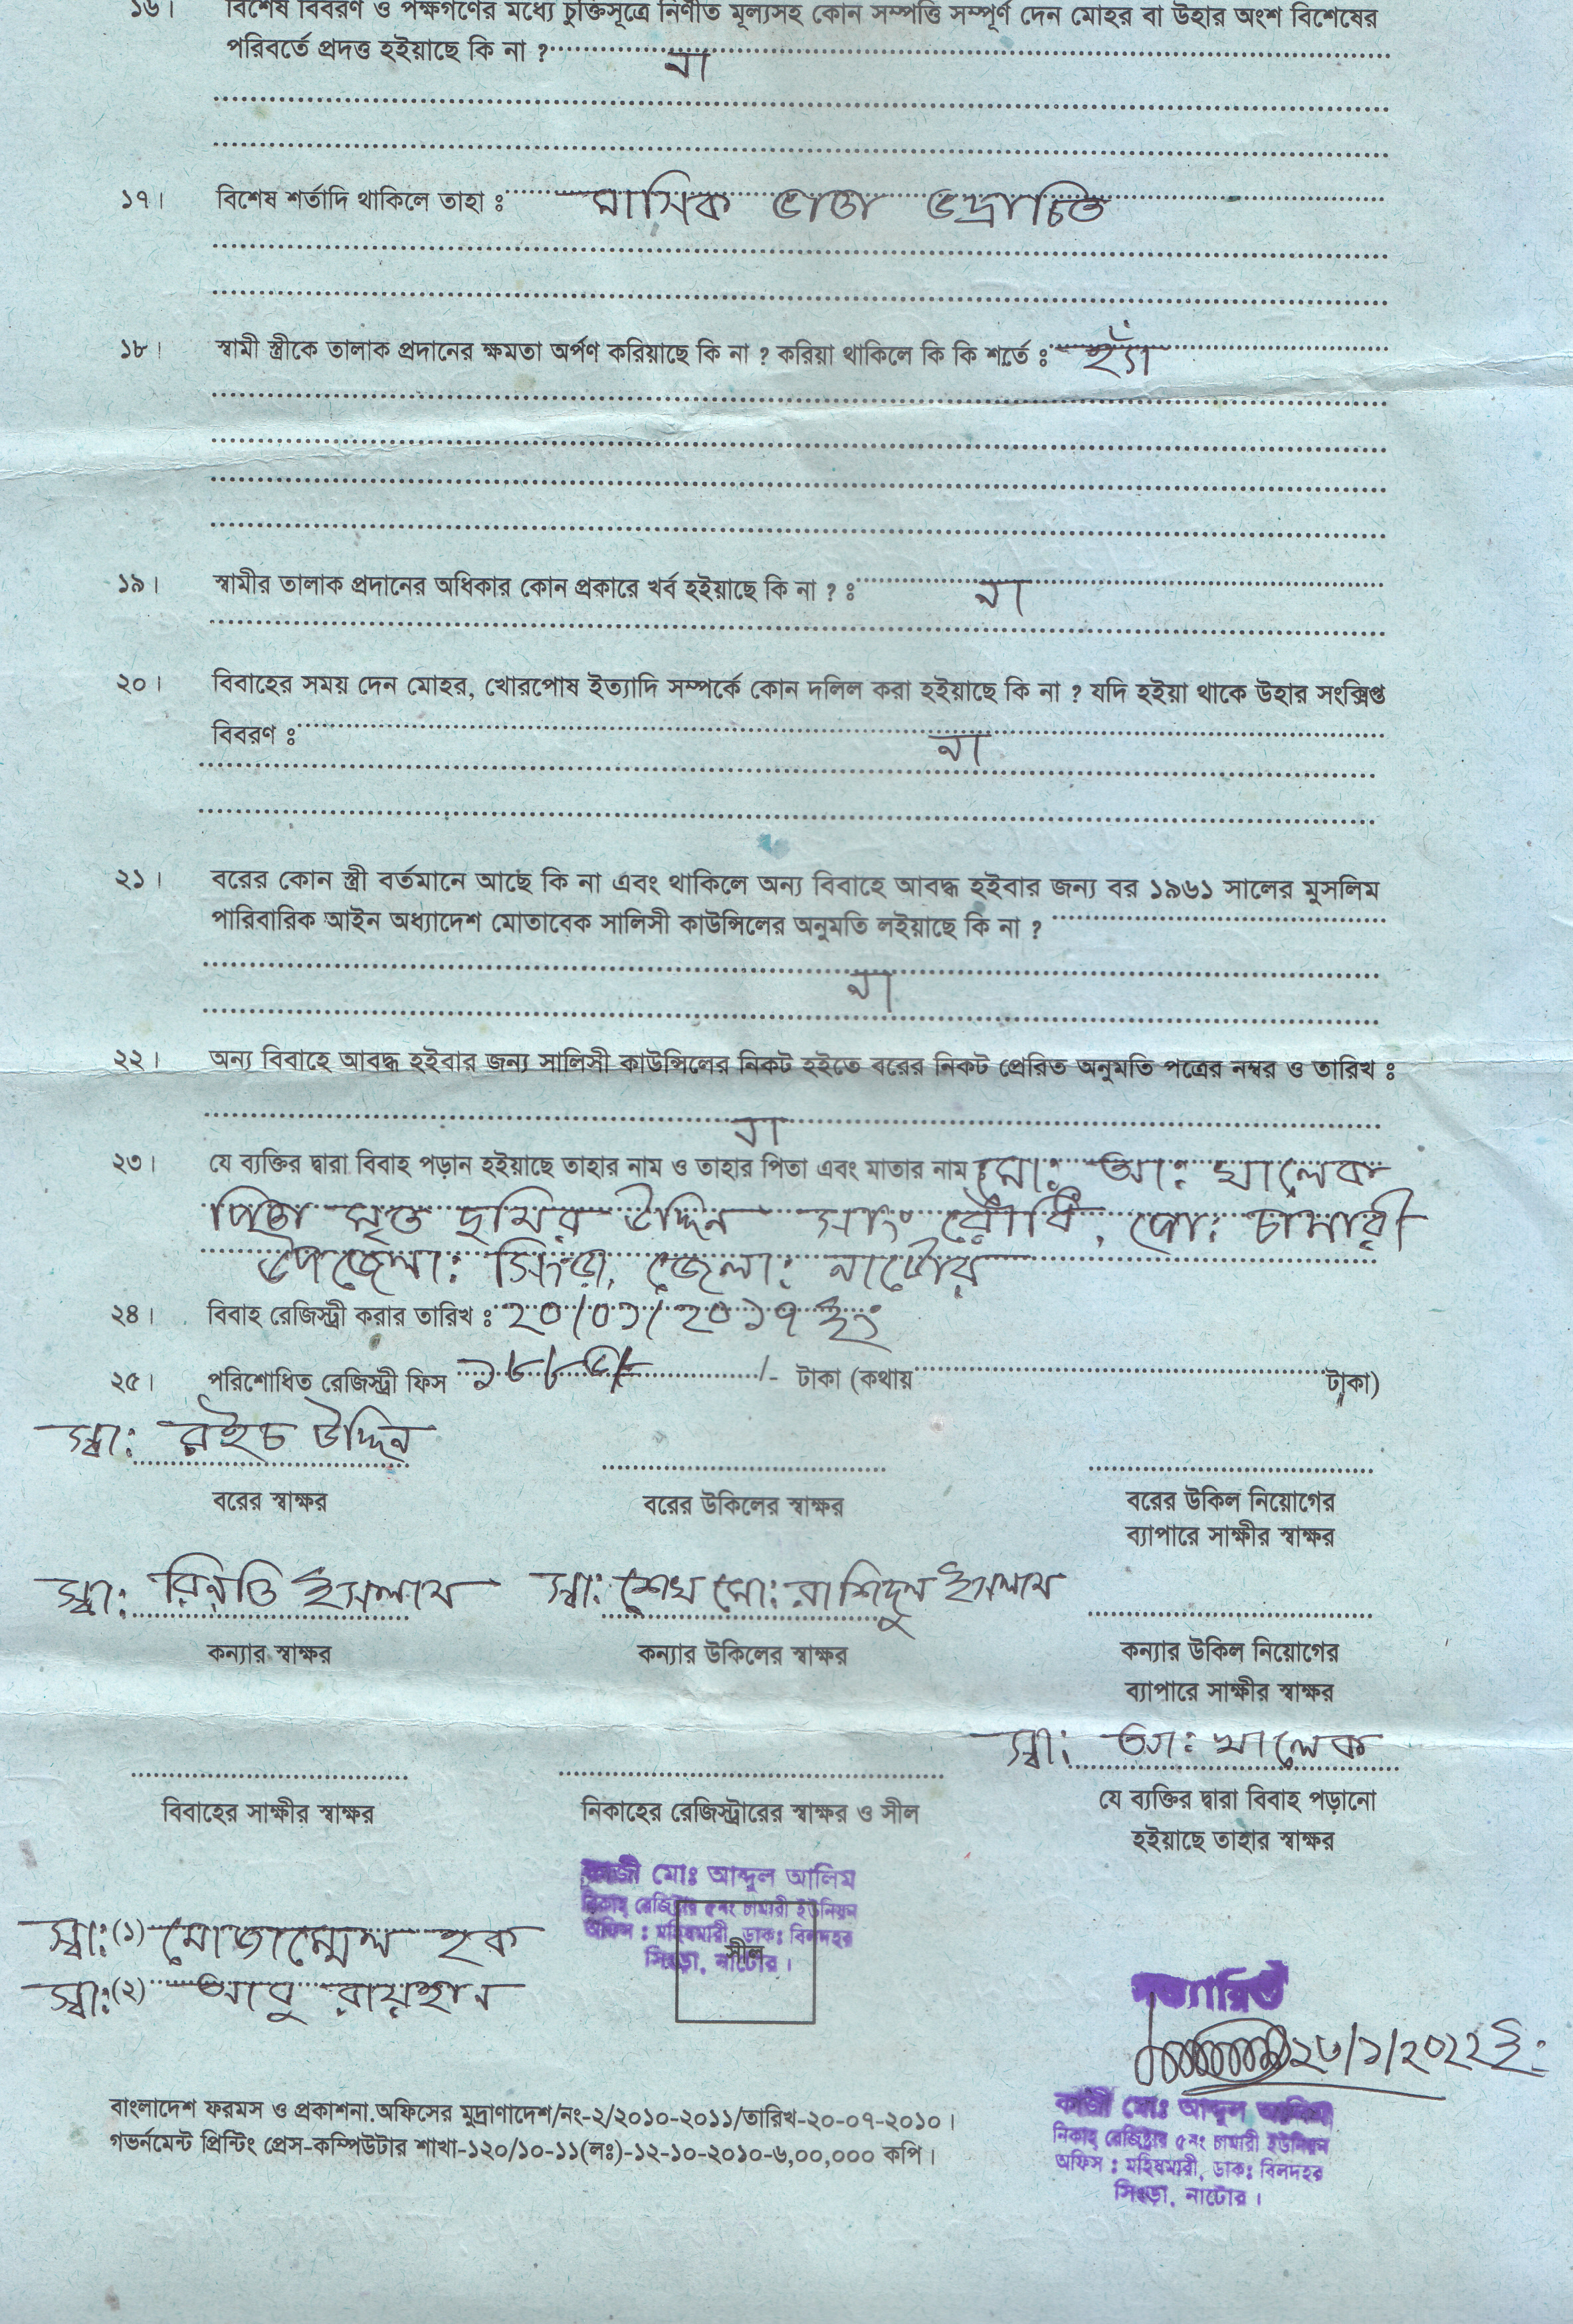 ১৬। বিশেষ বিবরণ ও পক্ষগণের মধ্যে চুক্তিসূত্রে নির্ণীত মূল্যসহ কোন সম্পত্তি সম্পূর্ণ দেন মোহর বা উহার অংশ বিশেষের
পরিবর্তে প্রদত্ত হইয়াছে কি না ? না
১৭। বিশেষ শর্তাদি থাকিলে তাহা ঃ মাসিক ভাতা ভদ্রোচিত
১৮। স্বামী স্ত্রীকে তালাক প্রদানের ক্ষমতা অর্পণ করিয়াছে কি না ? করিয়া থাকিলে কি কি শর্তে ঃ হ্যাঁ
১৯। স্বামীর তালাক প্রদানের অধিকার কোন প্রকারে খর্ব হইয়াছে কি না ? ঃ না
২০। বিবাহের সময় দেন মোহর, খোরপোষ ইত্যাদি সম্পর্কে কোন দলিল করা হইয়াছে কি না ? যদি হইয়া থাকে উহার সংক্ষিপ্ত
বিবরণ ঃ না
২১। বরের কোন স্ত্রী বর্তমানে আছে কি না এবং থাকিলে অন্য বিবাহে আবদ্ধ হইবার জন্য বর ১৯৬১ সালের মুসলিম
পারিবারিক আইন অধ্যাদেশ মোতাবেক সালিসী কাউন্সিলের অনুমতি লইয়াছে কি না ?
না
২২। অন্য বিবাহে আবদ্ধ হইবার জন্য সালিসী কাউন্সিলের নিকট হইতে বরের নিকট প্রেরিত অনুমতি পত্রের নম্বর ও তারিখ ঃ
না
২৩। যে ব্যক্তির দ্বারা বিবাহ পড়ান হইয়াছে তাহার নাম ও তাহার পিতা এবং মাতার নাম মো: আ: খালেক
পিতা মৃত ছমির উদ্দিন সাং পো: চামারী
উপজেলা: সিংড়া, জেলা: নাটোর
২৪। বিবাহ রেজিস্ট্রী করার তারিখ ঃ ২০/০১/২০১৭ ইং
২৫। পরিশোধিত রেজিস্ট্রী ফিস /- টাকা (কথায় টাকা)
স্বা: রইচ উদ্দিন
বরের স্বাক্ষর বরের উকিলের স্বাক্ষর বরের উকিল নিয়োগের
ব্যাপারে সাক্ষীর স্বাক্ষর
স্বা: ইসলাম স্বা: শেখ মো: রাশিদুল ইসলাম
কন্যার স্বাক্ষর কন্যার উকিলের স্বাক্ষর কন্যার উকিল নিয়োগের
ব্যাপারে সাক্ষীর স্বাক্ষর
স্বা: আ: খালেক
বিবাহের সাক্ষীর স্বাক্ষর নিকাহের রেজিস্ট্রারের স্বাক্ষর ও সীল যে ব্যক্তির দ্বারা বিবাহ পড়ানো
হইয়াছে তাহার স্বাক্ষর
কাজী মোঃ আব্দুল আলিম
নিকাহ্ রেজিষ্টার ৫নং চামারী ইউনিয়ন
অফিস : মহিষমারী, ডাক: বিলদহর
সিংড়া, নাটোর।
সীল
স্বা:(১) মোজাম্মেল হক
স্বা:(২) আবু রায়হান
সত্যায়িত
২৩/১/২০২২ ইং
কাজী মোঃ আব্দুল আলিম
নিকাহ্ রেজিষ্টার ৫নং চামারী ইউনিয়ন
অফিস : মহিষমারী, ডাক: বিলদহর
সিংড়া, নাটোর।
বাংলাদেশ ফরমস ও প্রকাশনা অফিসের মুদ্রাণাদেশ/নং-২/২০১০-২০১১/তারিখ-২০-০৭-২০১০।
গভর্নমেন্ট প্রিন্টিং প্রেস-কম্পিউটার শাখা-১২০/১০-১১(লঃ)-১২-১০-২০১০-৬,০০,০০০ কপি।